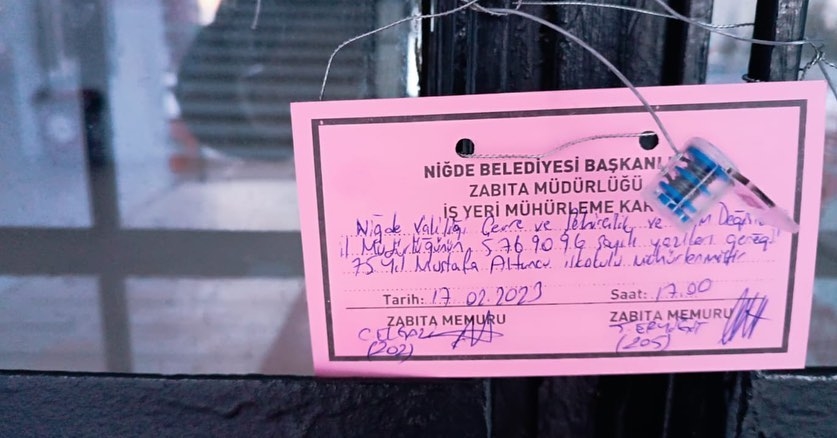 NİĞDE BELEDİYESİ BAŞKANLI
ZABITA MÜDÜRLÜĞÜ
İŞ YERİ MÜHÜRLEME KAR
Niğde Valiliği Çevre ve Şehircilik ve
il Müdürlüğünün 5769096 sayılı yazıları gereği
75 Yıl Mustafa Altuncu ilkokulu mühürlenmiştir
Tarih: 17.02.2023 Saat: 17.00
ZABITA MEMURU ZABITA MEMURU
(202) (205)